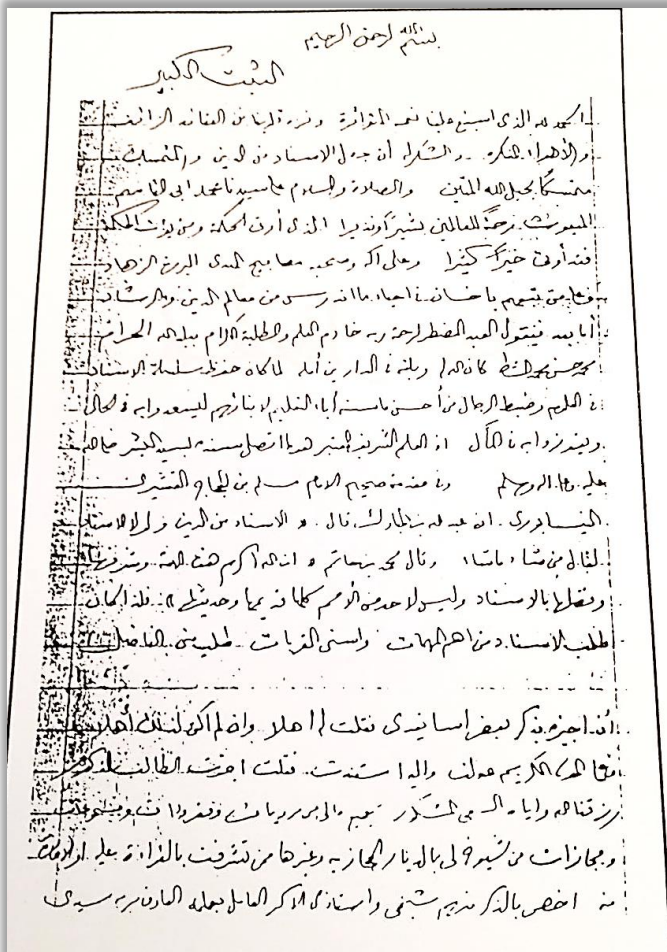 بسم الله الرحمن الرحيم
الثبت الكبير
الحمد لله الذي اسبغ علينا نعمه المتواترة ونزه قلوبنا من العقائد الزائفة
والأهواء المنكرة والشكر له أن جعل الاسناد من الدين والمتمسك
متمسكاً بحبل الله المتين والصلاة والسلام على سيدنا محمد ابي القاسم
المبعوث رحمة للعالمين بشيراً ونذيرا الذي أوتي الحكمة ومن يؤت الحكمة
فقد أوتي خيراً كثيرا وعلى اله وصحبه مصابيح الهدى البررة الزهاد
وعلى من تبعهم باحسان في احياء ما اندرس من معالم الدين والرشاد
أما بعد فيقول العبد المضطر لرحمة ربه خادم العلم والطلبة الكرام ببلد الله الحرام
محمد حسن محمد المشاط كان الله له وبلغه في الدارين أمله لما كان حفظ سلسلة الاسناد
في العلوم وضبط الرجال من أحسن ما سنه آباء التعليم لابنائهم ليسعدوا به في الحال
ويتزودوا به في المآل اذ العلم الشريف المعتبر هو ما اتصل سنده بسيد البشر صلى الله
عليه وعلى اله وسلم وفي مقدمة صحيح الامام مسلم بن الحجاج القشيري
النيسابوري ان عبد الله بن المبارك قال و الاسناد من الدين ولولا الاسناد
لقال من شاء ما شاء وقال محمد بن حاتم و ان الله اكرم هذه الامة وشرفها
وفضلها بالاسناد وليس لاحد من الأمم كلها قديمها وحديثها » فلذا كان
طلب الاسناد من اهم المهمات واسنى القربات طلب مني الفاضل
أن اجيزه بذكر بعض اسانيدي فقلت له اهلا وان لم اكن لذلك أهلا
فعلى الله الكريم عولت واليه استندت فقلت اجزت الطالب المذكور
رزقنا الله واياه السعي المشكور بجميع مالي من مرويات ومقروءات ومسموعات
ومجازات من شيوخي بالديار الحجازية وغيرها ممن تشرفت بالقراءة عليه او الاجازة
منه اخص بالذكر منهم شيخي واستاذي الاكبر العامل بعلمه العارف بربه سيدي